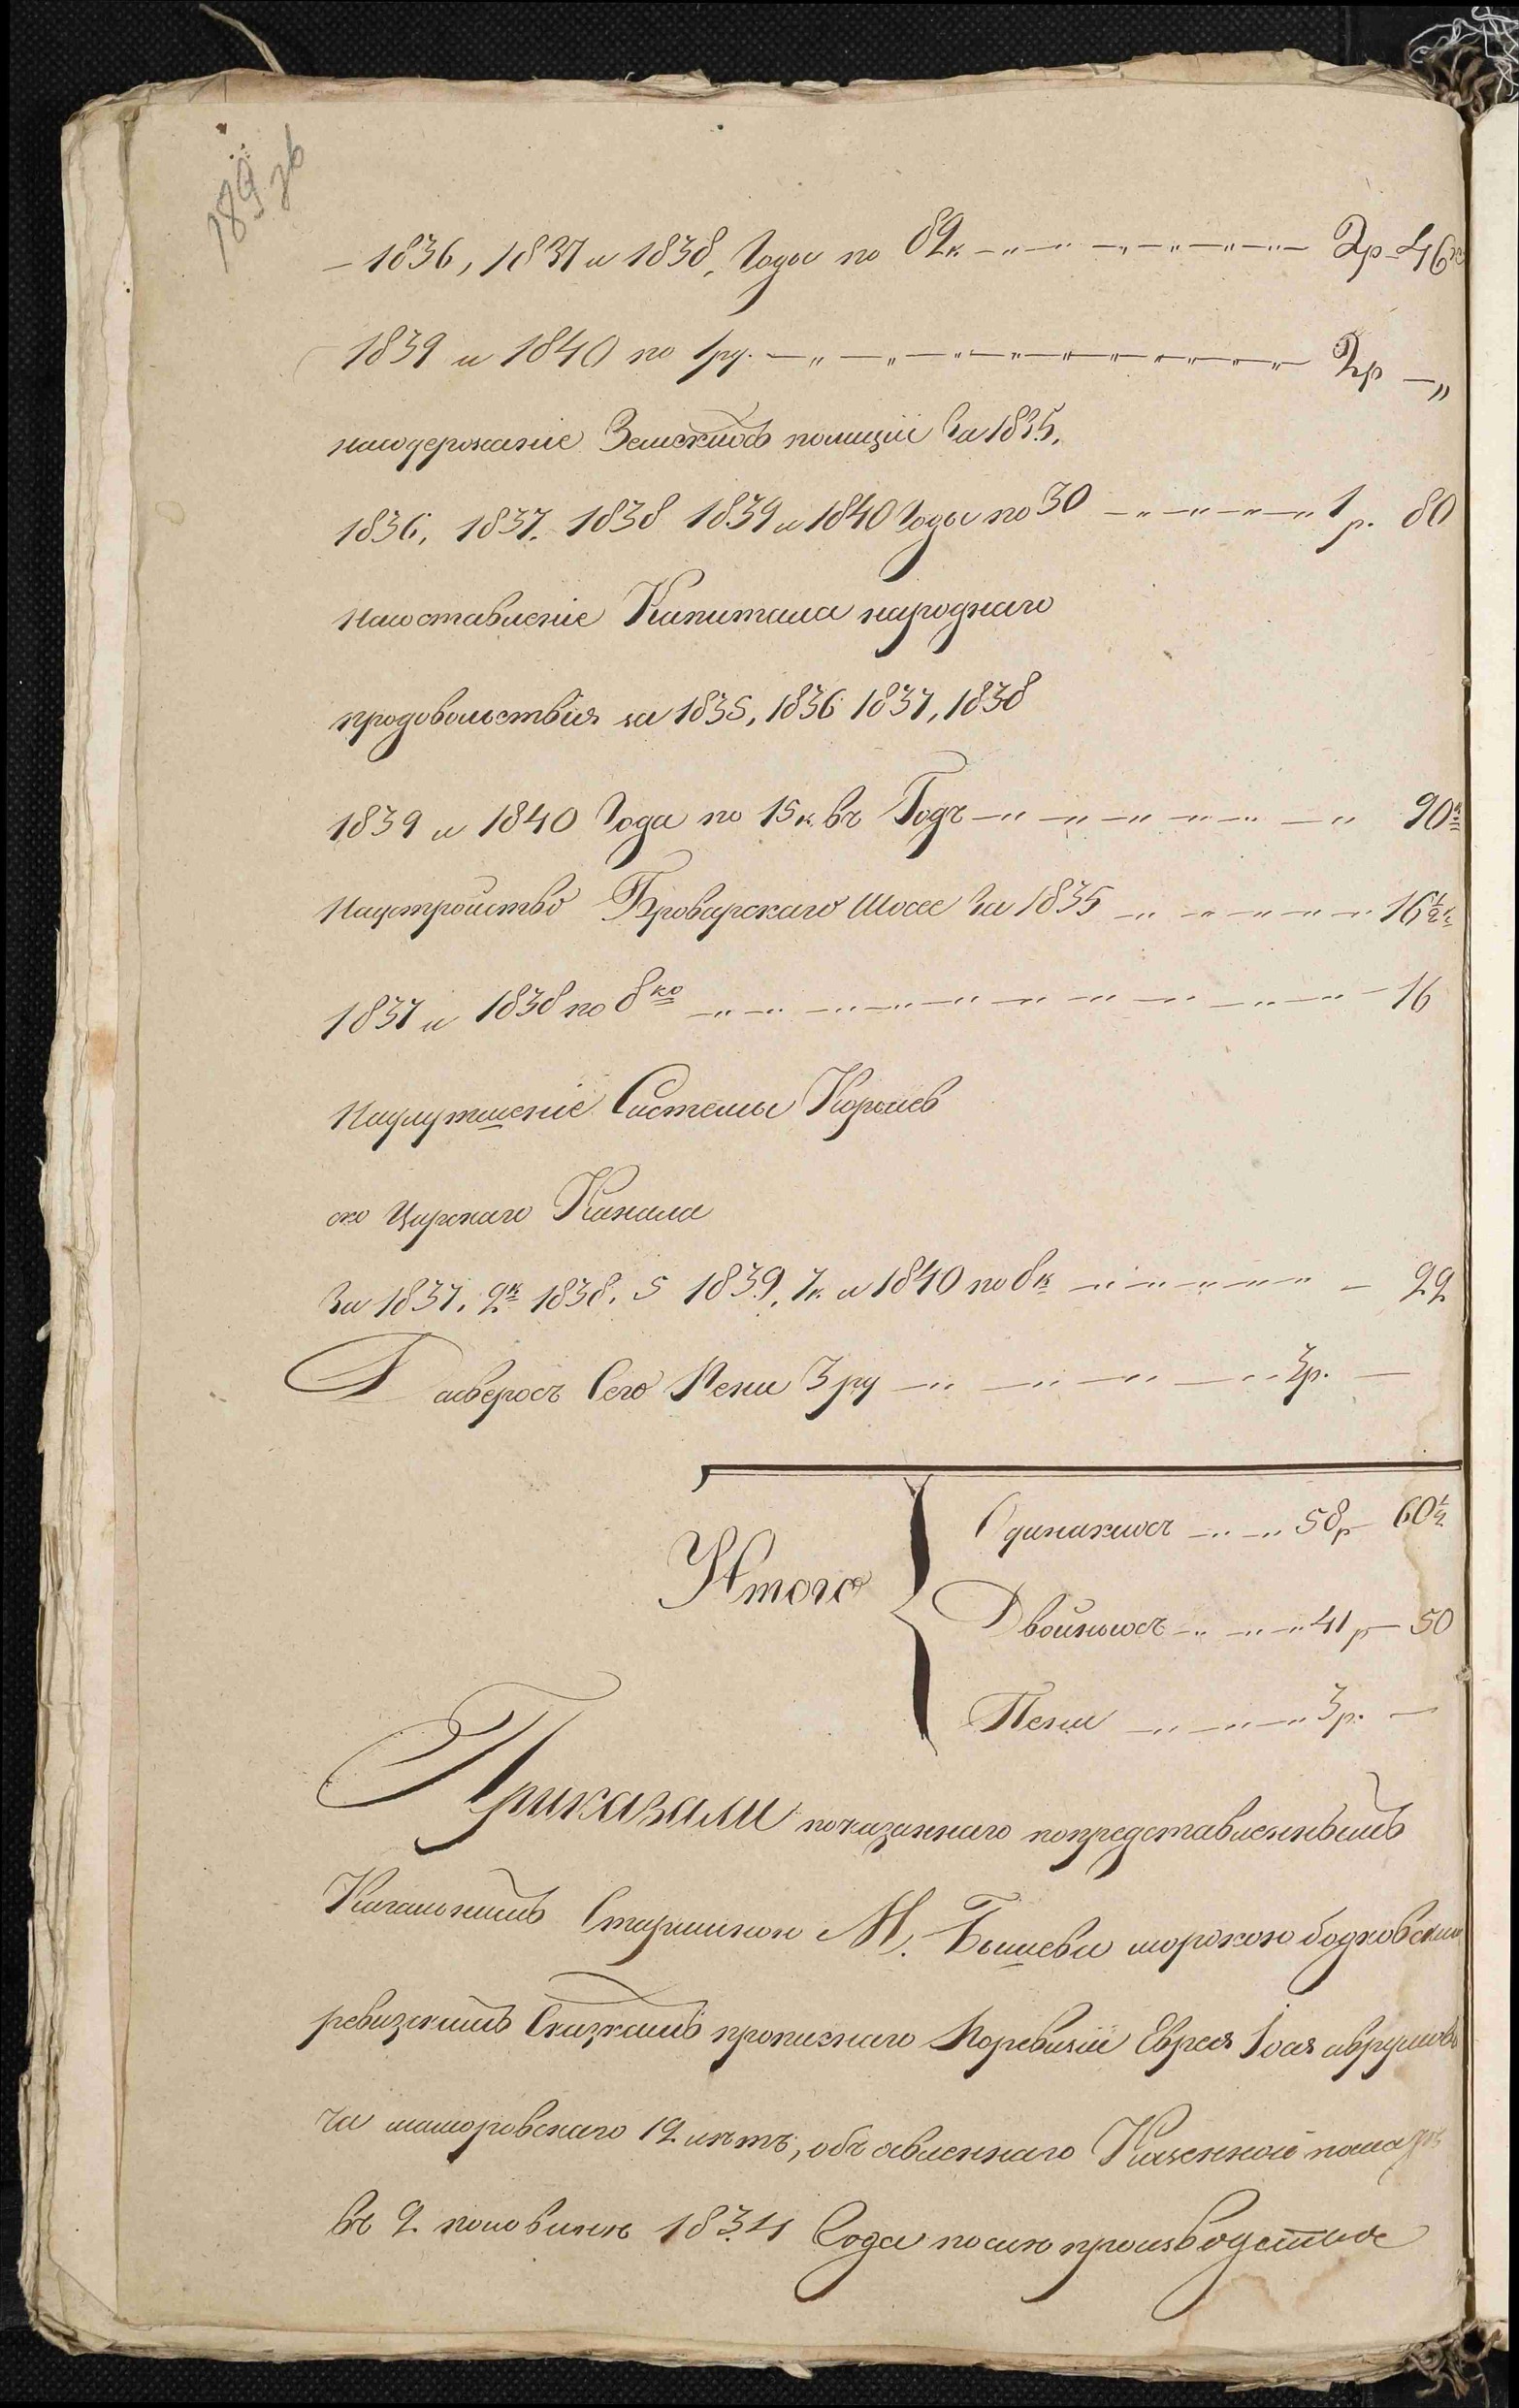 189 зв
– 1836, 1837 и 1838, Годы по 82к — 2р – 46к
1839 и 1840 по 1ру. — 2р —„
насодержаніе Земскихъ полиціи За 1835,
1836, 1837, 1838 1839 и 1840 Годы по 30 — 1р. 80
насоставленіе Капитала народнаго
продовольствія за 1835, 1836 1837, 1838
1839 и 1840 Года по 15к въ Годъ — 90к
Наустройство Броварскаго Шосе За 1835 — 16½к
1837 и 1838 по 8ко — 16
Наулутшеніе Системы Королев
ско Царскаго Канала
За 1837, 2к 1838, 5 1839, 7к и 1840 по 8к — 22
А сверхъ Сего Пени 3 ру — 3р. —
Итого
Одинакихъ — 58р – 60½
Двойныхъ — 41р – 50
Пени — 3р. —
Приказали показаннаго попредставленнымъ
Кагальнымъ Старшиною М. Бышева
ревизскимъ Сказкамъ прописнаго Поревизіи Еврея
ча 12 лѣтъ, объявленнаго Казенной полатѣ
въ 2 половинѣ 1834 Года